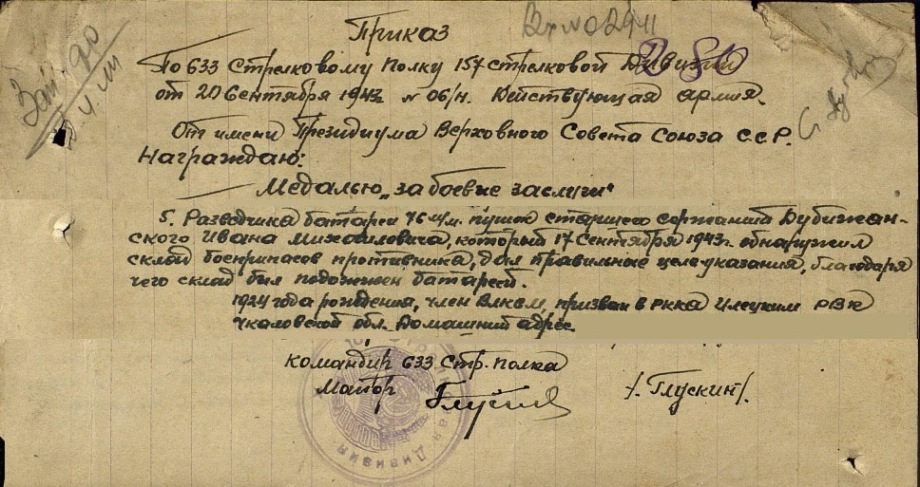 Приказ
По 633 Стрелковому Полку 157 стрелковой Дивизии
от 20 Сентября 1943г. N 06/н. Действующая армия.
От имени Президиума Верховного Совета Союза С.С.Р.
Награждаю:
Медалью „за боевые заслуги"
5. Разведчика батареи 76 м/м. пушек старшего сержанта Дубижан-
ского Ивана Михайловича, который 17 Сентября 1943г. обнаружил
склад боеприпасов противника, дал правильные целеуказания, благодаря
чего склад был подожжен батареей.
1924 года рождения, член ВЛКСМ, призван в РККА Илецким РВК
Чкаловской обл. Домашний адрес.
Командир 633 Стр. полка
Майор
/Глускин/.
дивизия